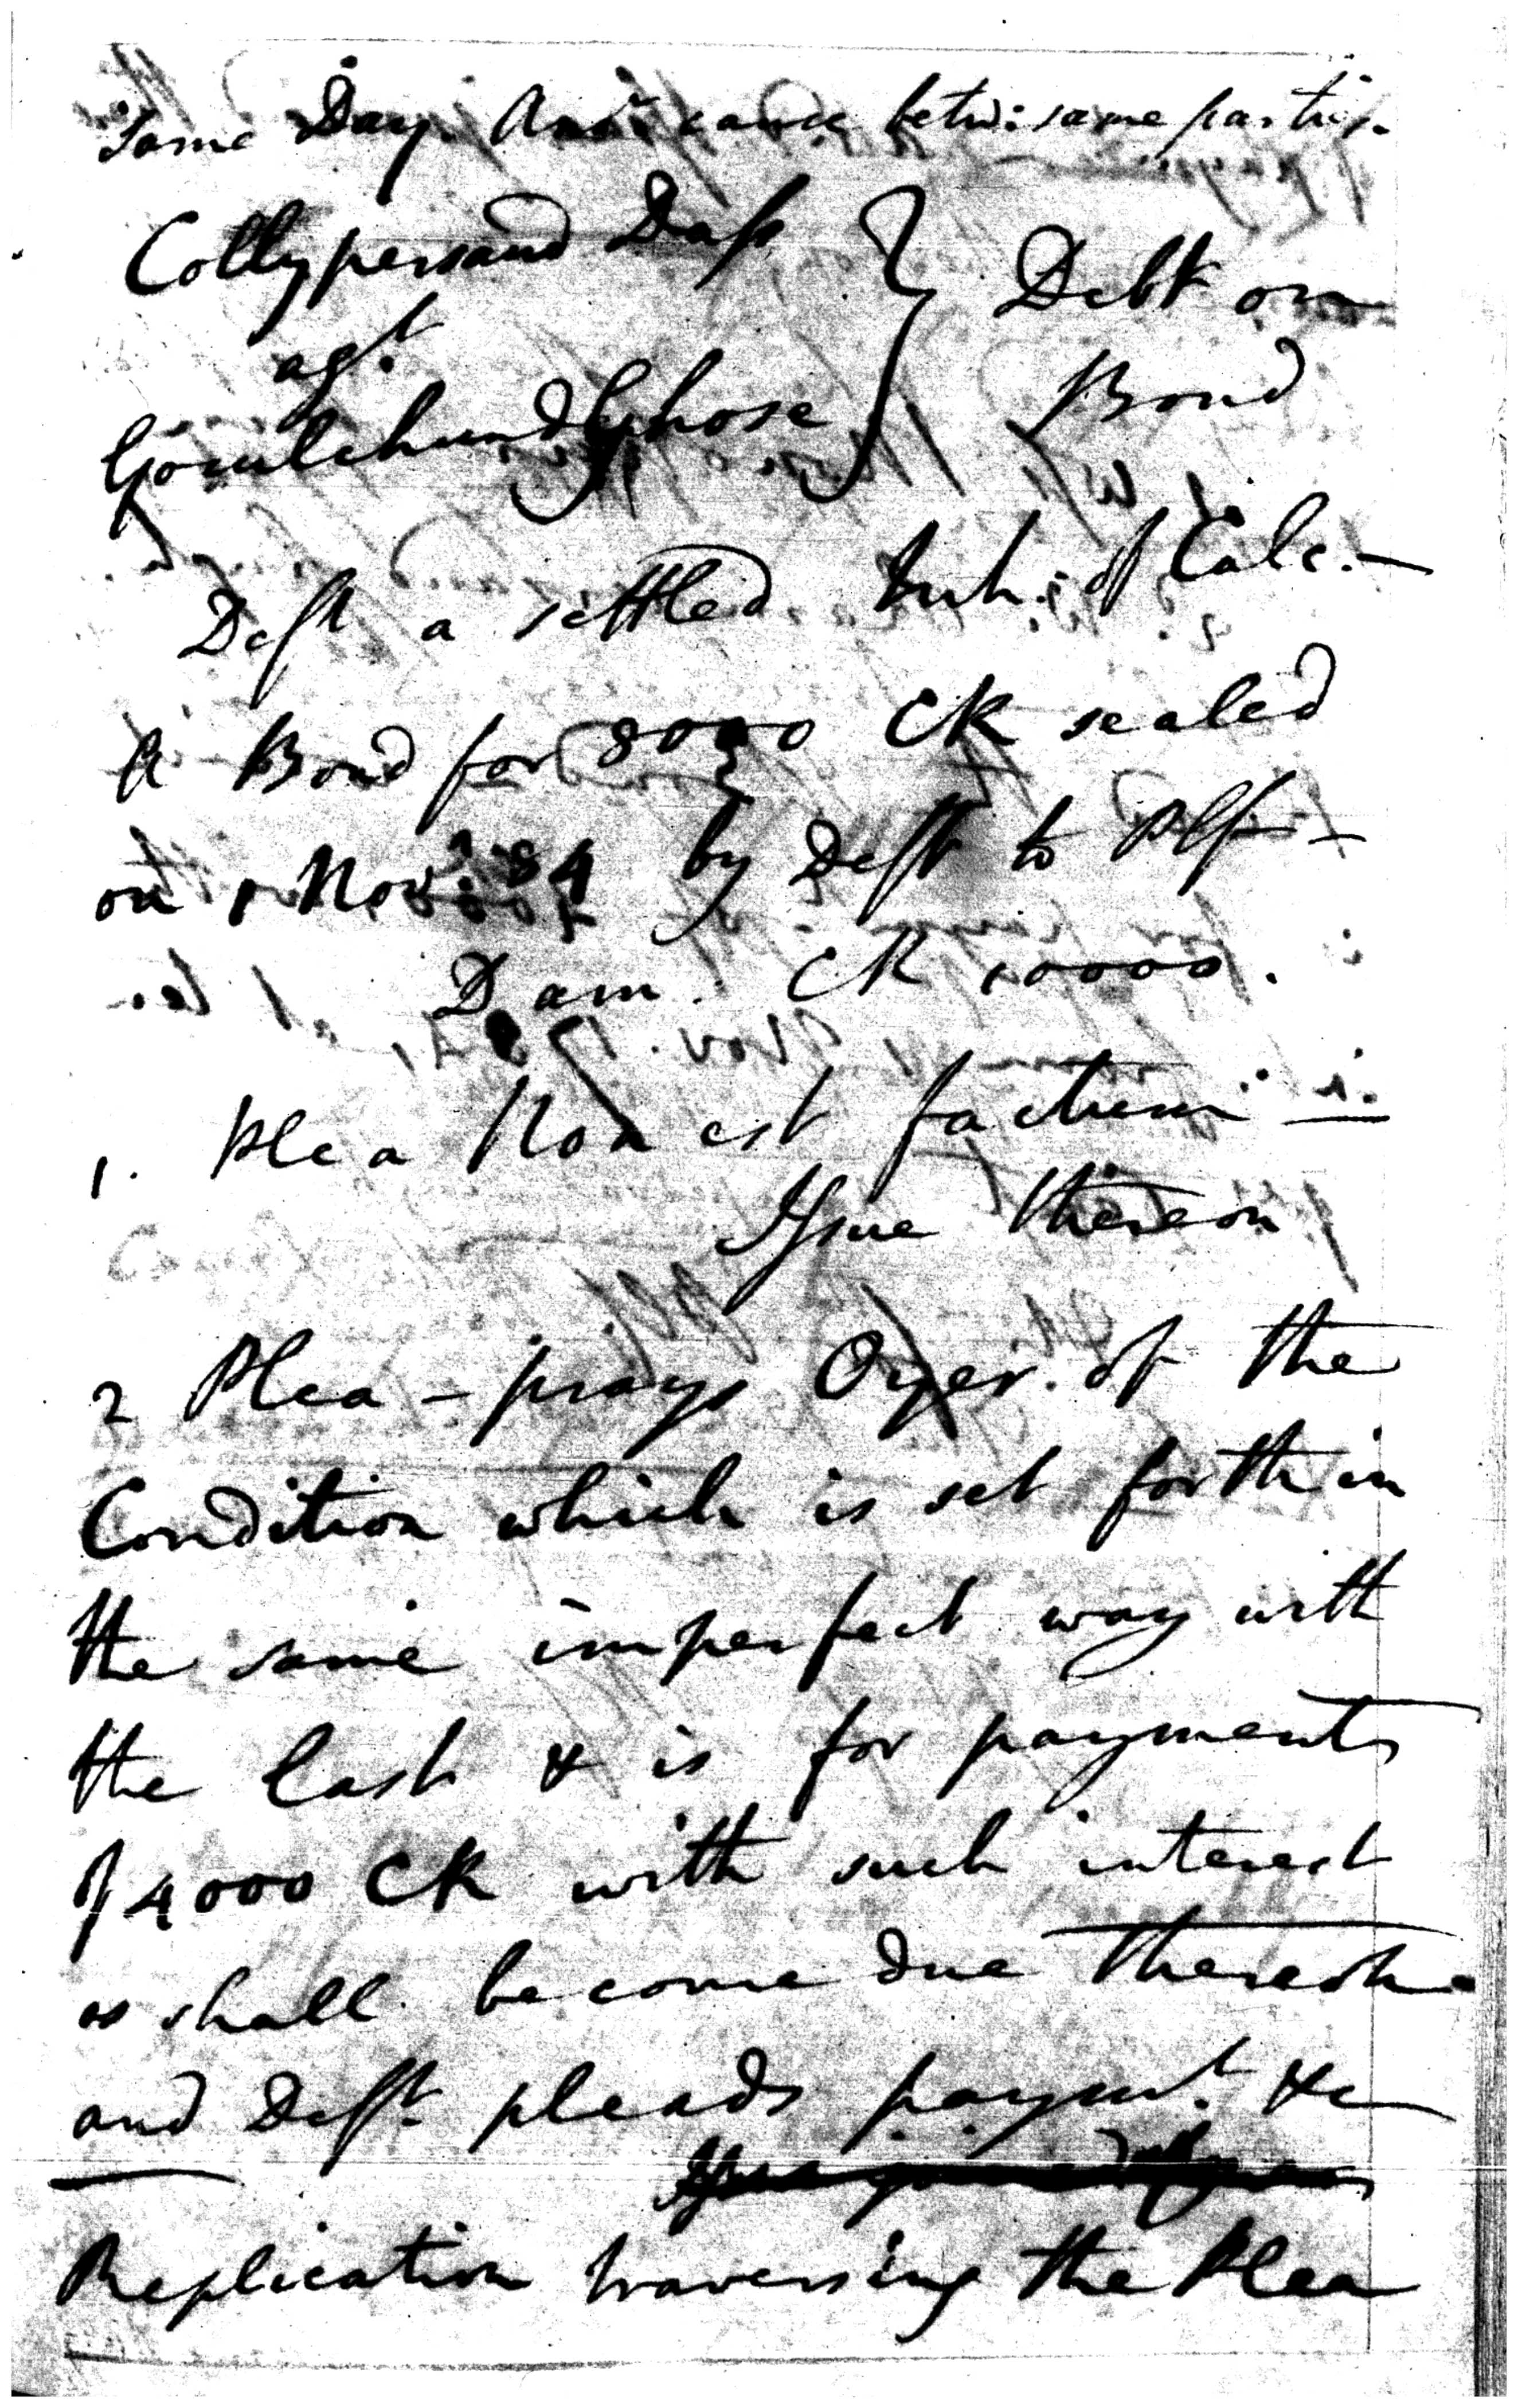 Same Day. Anor. cause betw: same parties.
Collypersaud Dass
agt.
Goculchund Ghose
Debt on
Bond
Deft a settled Inh: of Calc. —
A Bond for 8000 CR sealed
on 1 Nov: 84 by Deft to Plf —
Dam. CR 10000.
1. Plea Non est factum —
Issue thereon
2 Plea – prays Oyer. of the
Condition which is set forth in
the same imperfect way with
the last & is for payment
of 4000 CR with such interest
as shall become due thereon
and Deft. pleads paymt. &c
Replication traversing the Plea